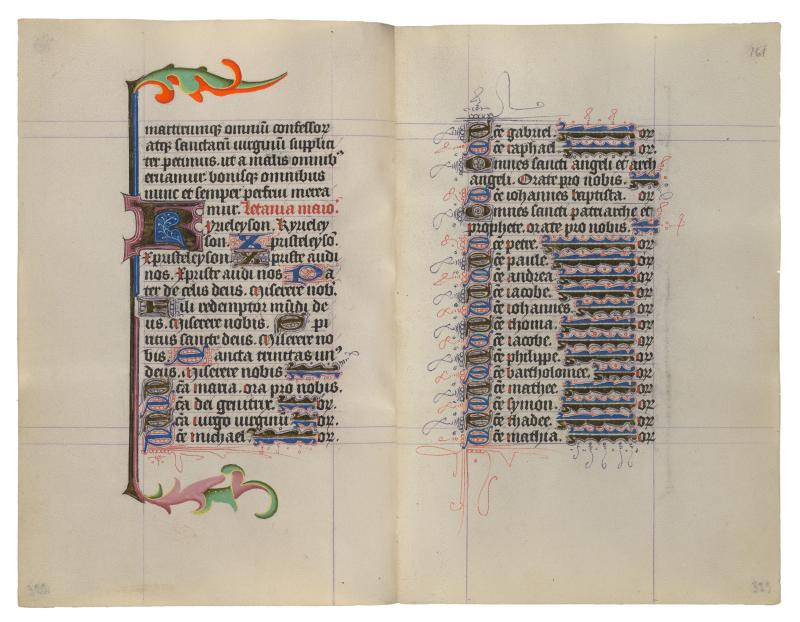 martirumq; omniū confessor
atq; sanctarū uirginū supplici
ter petimus. ut a malis omnib"
eruamur. bonisq; omnibus
nunc et semper perfrui merea
mur. Letania maio.
Kyrieleyson. Kyrieley
son. Xpristeleyso.
Xpristeleyson. Xpriste audi
nos. Xpriste audi nos. Pa
ter de celis deus. Miserere nob.
Fili redemptor mūdi de
us. Miserere nobis. Spi
ritus sancte deus. Miserere no
bis. Sancta trinitas un"
deus. Miserere nobis.
Scā maria. ora pro nobis.
Scā dei genitrix. or.
Scā uirgo uirginū or.
Scē michael. or.
161
Scē gabriel. or
Scē raphael. or
Omnes sancti angeli et arch
angeli. Orate pro nobis.
Scē iohannes baptista. or
Omnes sancti patriarche et
prophete. orate pro nobis.
Scē petre. or
Scē paule. or
Scē andrea. or
Scē iacobe. or
Scē iohannes. or
Scē thoma. or
Scē iacobe. or
Scē philippe. or
Scē bartholomee. or
Scē mathee. or
Scē symon. or
Scē thadee. or
Scē mathia. or
323